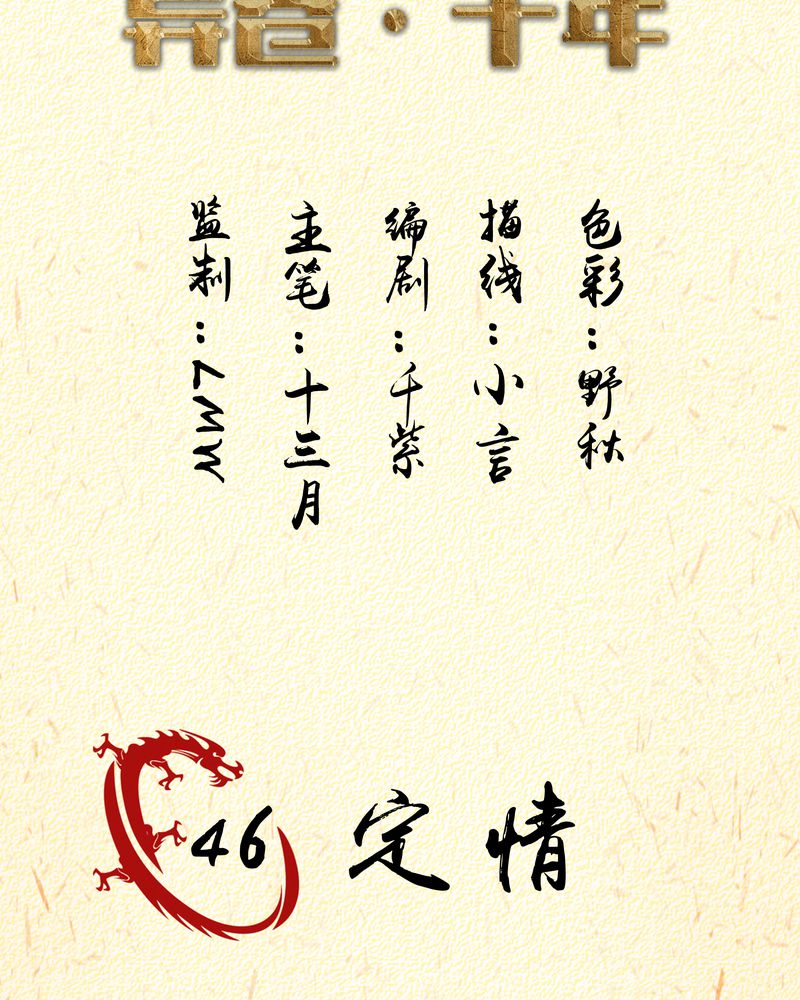 ·千年
监制：
主笔：十三月
编剧：千紫
描线：小言
色彩：野秋
46 定情